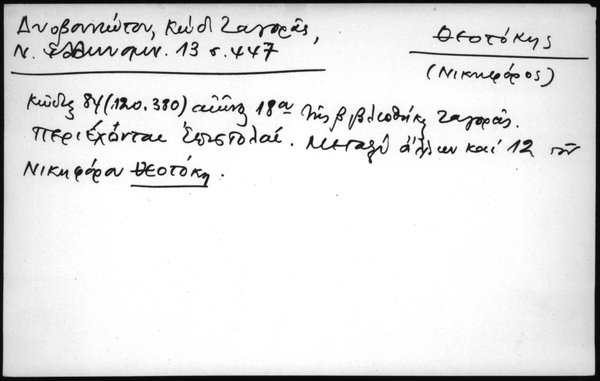 Δυοβουνιώτου, Κώδ. Ζαγορᾶς,
Ν. Ἑλληνομν. 13 σ. 447
Θεοτόκης
(Νικηφόρος)
Κώδιξ 84 (120.380) αἰῶνος 18ου τῆς βιβλιοθήκης Ζαγορᾶς.
Περιέχονται Ἐπιστολαί. Μεταξὺ ἄλλων καὶ 12 τοῦ
Νικηφόρου Θεοτόκη.